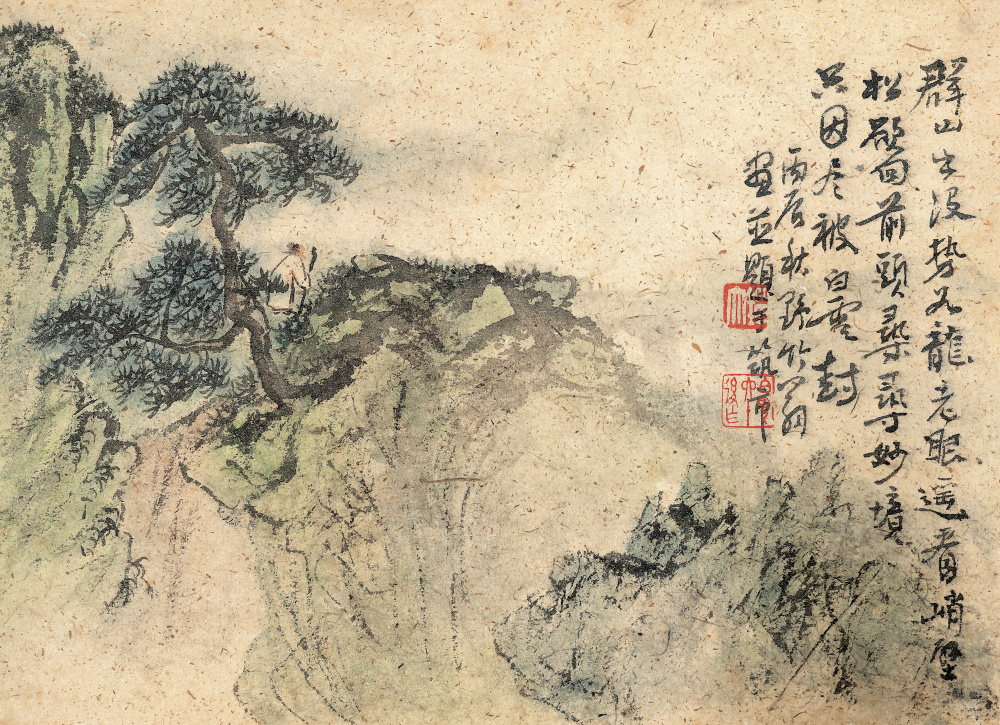 群山出没势如龍老眼遥看峭壁
松欲向前頭尋妙境
只因尽被白雲封
丙辰秋野竹翁
畫並題于筑